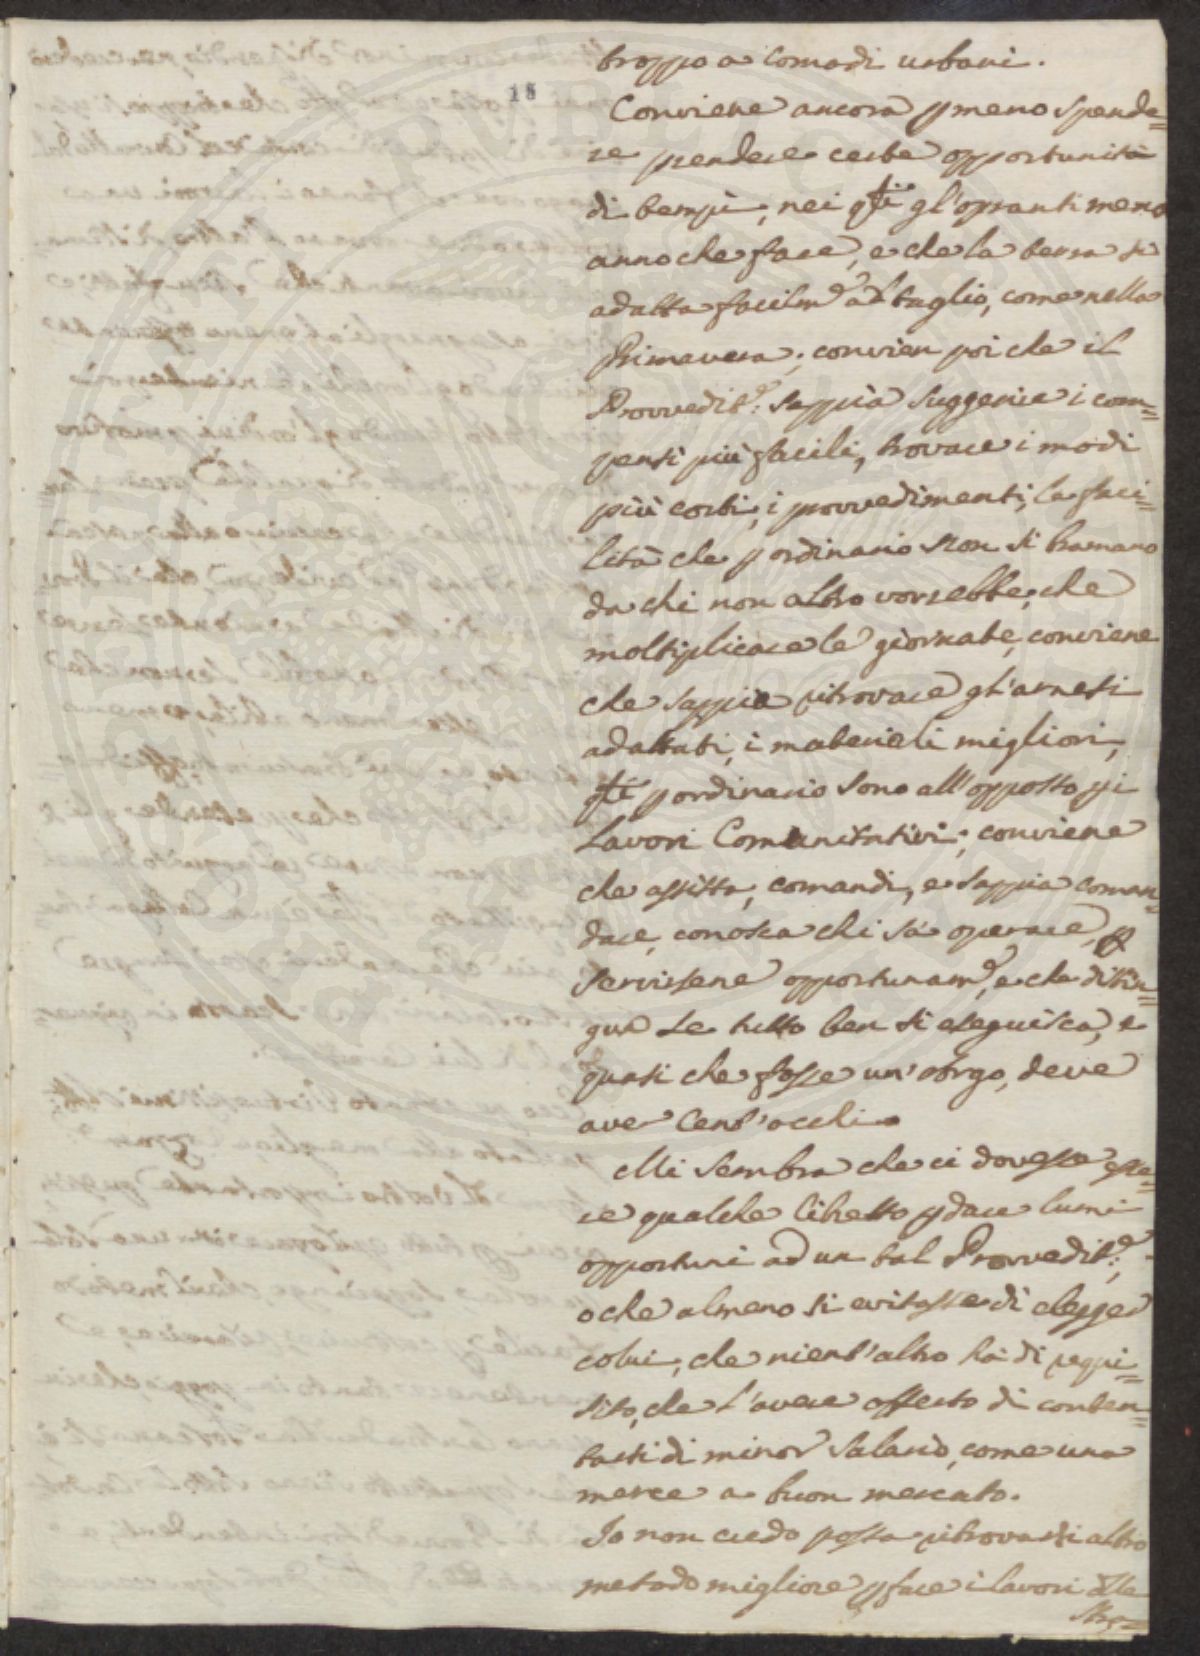 15
troppo a comodi urbani.
Conviene ancora p meno spende=
re prendere certe opportunità
di tempi, nei qti gl'opranti meno
anno che fare, e che la terra si
adatta facilmte al taglio, come nella
Primavera; convien poi che il
Provvedite: sappia suggerire i com=
pensi più facili, trovare i modi
più corti, i provvedimenti, la faci=
lità che p ordinario non si bramano
da chi non altro vorrebbe, che
moltiplicare le giornate, conviene
che sappia ritrovare gl'arnesi
adattati, i materiali migliori,
qti p ordinario sono all'opposto pi
Lavori Comunitativi; conviene
che assista, comandi, e sappia coman=
dare, conosca chi sà operare, p
servirsene opportunamte, e che distin=
gua se tutto ben si eseguisca, e
quasi che fosse un'Argo, deve
aver Cent'occhi.
Mi sembra che ci dovesse esse=
re qualche libretto p dare lumi
opportuni ad un tal Provvedite:,
o che almeno si evitasse di elegger
colui, che nient'altro hà di requi=
sito, che l'avere offerto di conten=
tarsi di minor Salario, come una
merce a buon mercato.
Io non credo possa ritrovarsi altro
metodo migliore p fare i lavori dlle